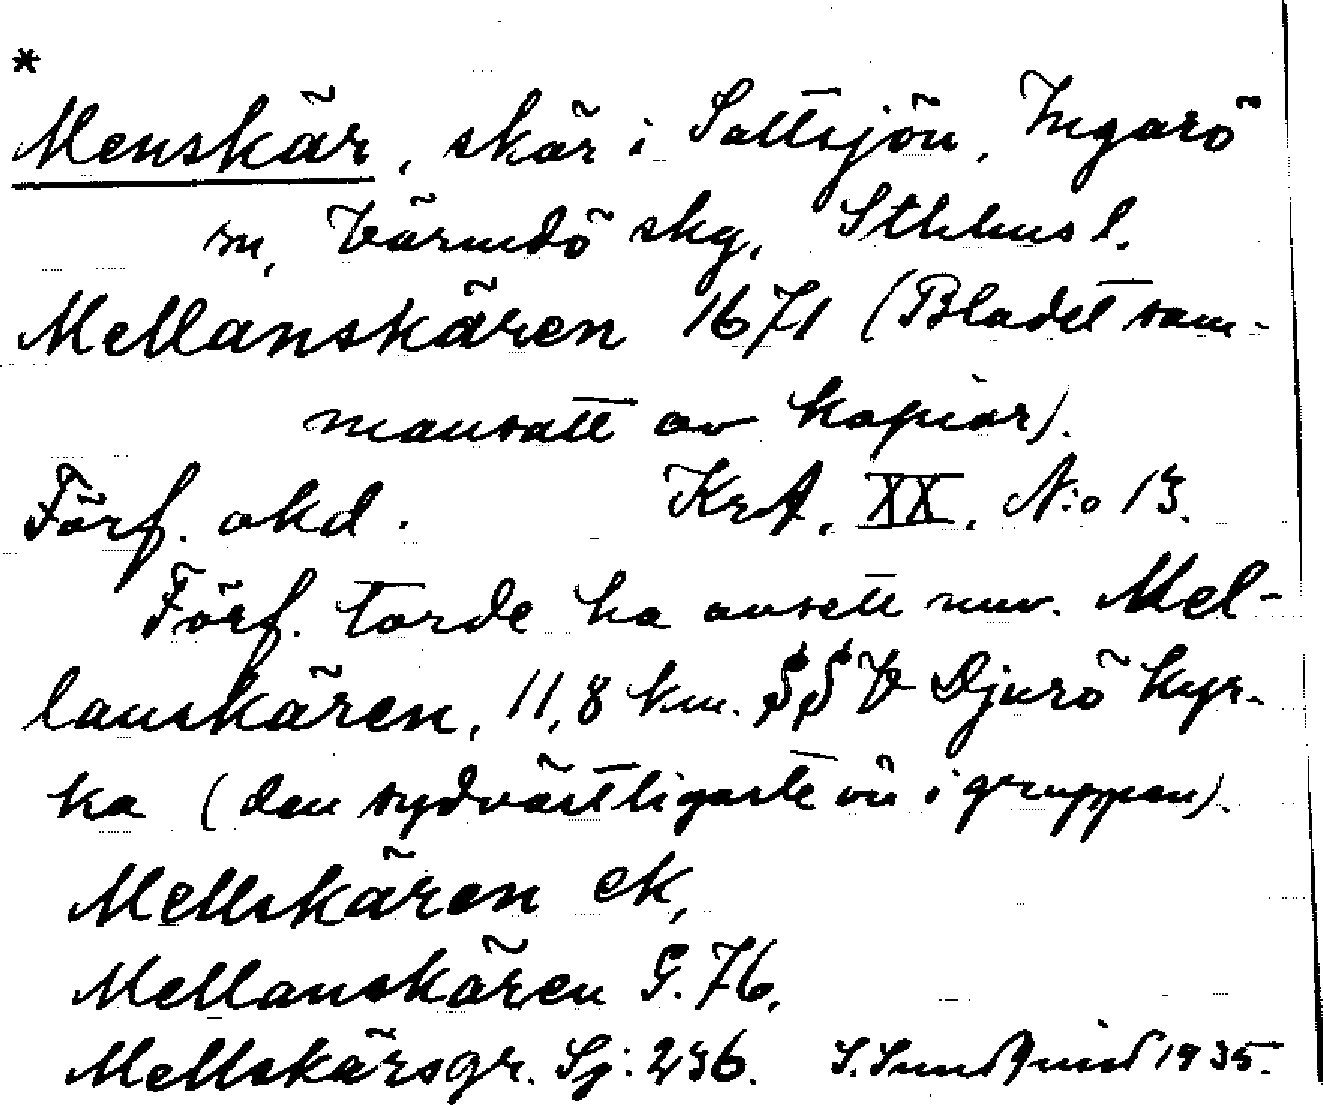 *
Menskär, skär i Saltsjön, Ingarö
sn, Värmdö skg, Sthlms l.
Mellanskären 1671 (Bladet sam-
mansatt av kopior).
Förf. okd. KrA. XX. N:o 13.
Förf. torde ha avsett nuv. Mel-
lanskären, 11,8 km. SSV Djurö kyr-
ka (den sydvästligaste ön i gruppen).
Mellskären ek,
Mellanskären G. 76,
Mellskärsgr. Sj: 236. S. Sundquist 1935.